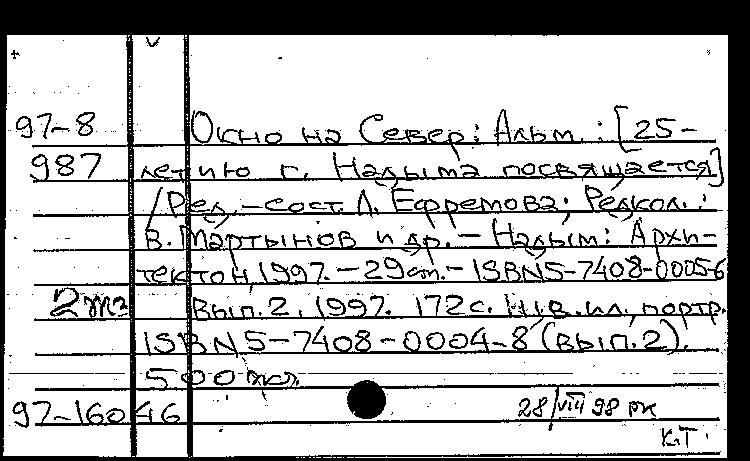 97-8 Окно на Север: Альм.: [25-
987 летию г. Надыма посвящается]
/Ред.-сост. Л. Ефремова; Редкол.:
В. Мартынов и др. - Надым: Архи-
тектон, 1997. - 29 см. - ISBN 5-7408-0005-6
Вып. 2. 1997. 172 с. ил., портр.
ISBN 5-7408-0004-8 (вып. 2).
500 экз.
97-16046 28/VIII 98 рк
К.Т.